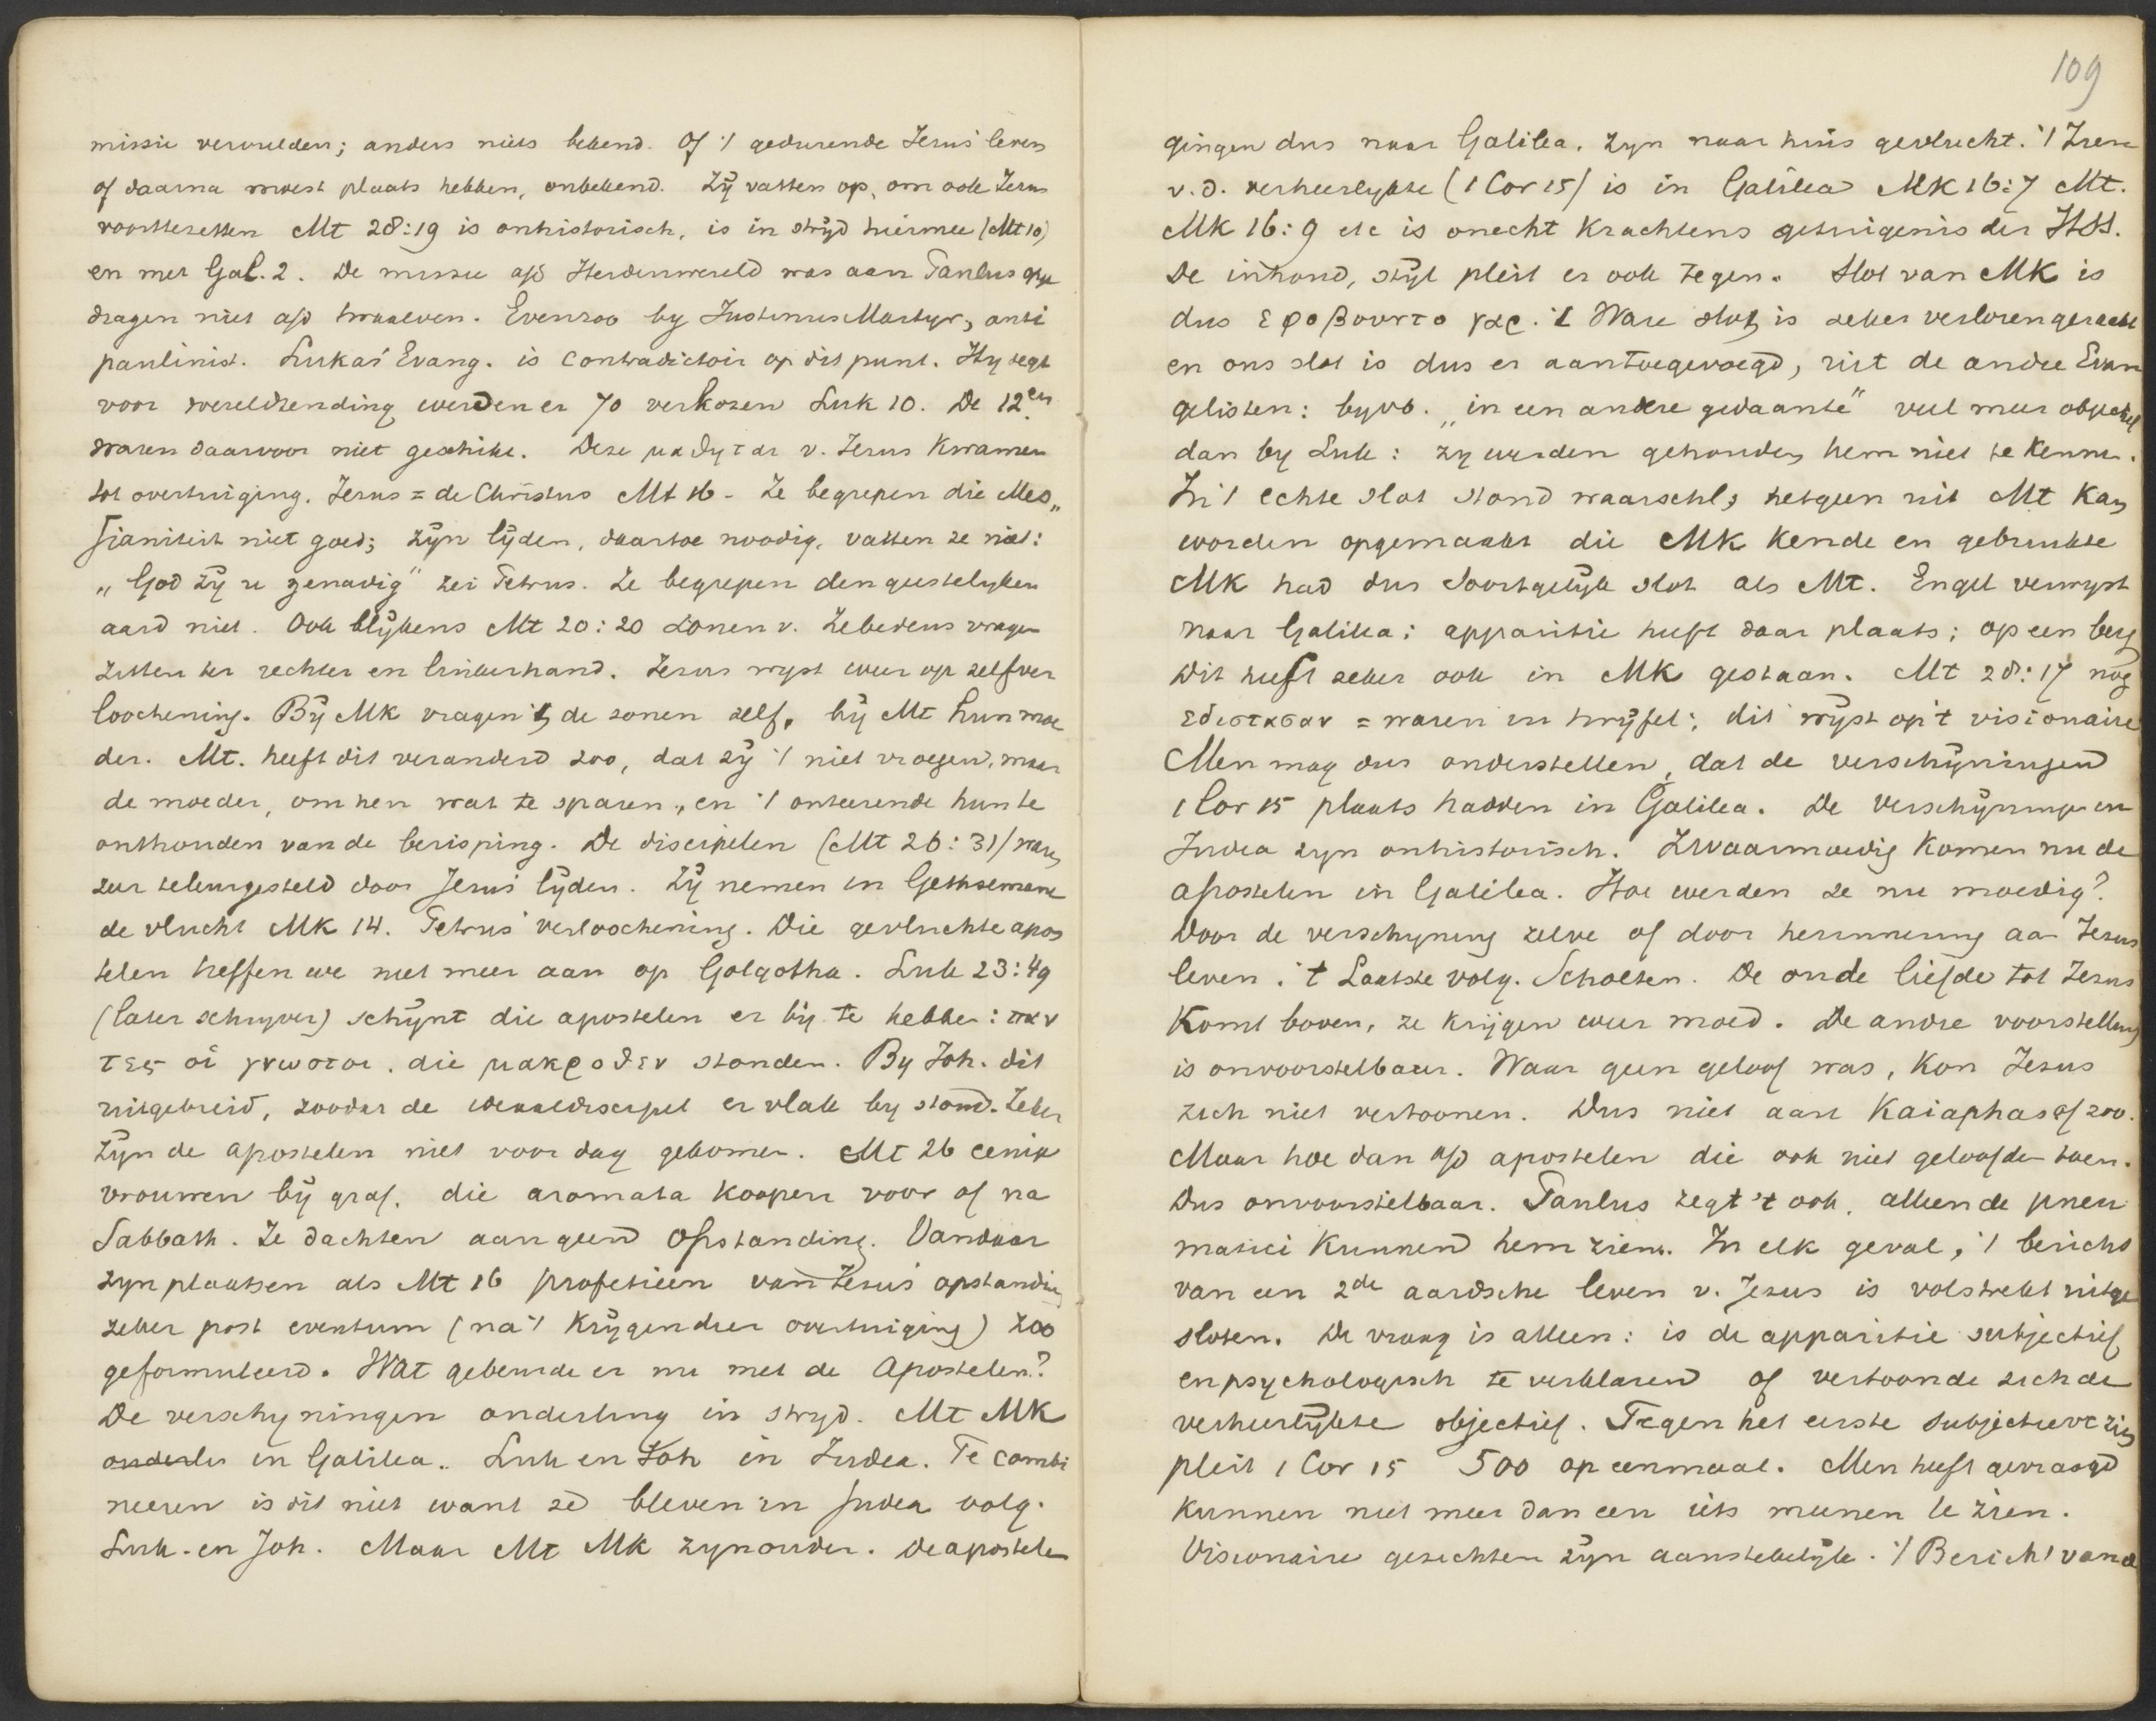 missie vervulden; anders niets bekend. Of 't gedurende Jezus' leven
of daarna moest plaats hebben, onbekend. Zÿ vatten op, om ook Jezus
voorttezetten Mt 28:19 is onhistorisch, is in strÿd hiermee (Mt 10)
en met Gal. 2. De missie a/d Heidenwereld was aan Paulus opge
dragen niet a/d twaalven. Evenzoo by Justinus Martyr, anti
paulinist. Lukas' Evang. is contradictoir op dit punt. Hy zegt
voor wereldzending werden er 70 verkozen Luk 10. De 12en
waren daarvoor niet geschikt. Deze μαθηται v. Jezus kwamen
tot overtuiging. Jezus = de Christus Mt 16 - Ze begrepen die Mes„
sianiteit niet goed; zÿn lÿden, daartoe noodig, vatten ze niet:
„God zÿ u genadig" zei Petrus. Ze begrepen den geestelyken
aard niet. Ook blÿkens Mt 20:20 zonen v. Zebedeus vragen
zitten ter rechter en linkerhand. Jezus wyst weer op zelfver
loochening. Bÿ MK vragen 't de zonen zelf, bÿ Mt hun moe
der. Mt. heeft dit veranderd zoo, dat zÿ 't niet vroegen, maar
de moeder, om hen wat te sparen, en 't onteerende hun te
onthouden van de berisping. De discipelen (Mt 26:31) waren
zeer teleurgesteld door Jezus' lÿden. Zÿ nemen in Gethsemane
de vlucht MK 14. Petrus' verloochening. Die gevluchte apos
telen treffen we niet meer aan op Golgotha. Luk 23:49
(later schryver) schÿnt die apostelen er bÿ te hebben: παν
τες οἱ γνωστοι, die μακροθεν stonden. By Joh. dit
uitgebreid, zoodat de ideaaldiscipel er vlak by stond. Zeker
zÿn de apostelen niet voor dag gekomen. Mt 26 eenige
vrouwen bÿ graf, die aromata koopen voor of na
Sabbath. Ze dachten aan geen opstanding. Vandaar
zyn plaatsen als Mt 16 profetieën van Jezus' opstanding
zeker post eventum (na 't krÿgen dier overtuiging) zoo
geformuleerd. Wat gebeurde er nu met de Apostelen?
De verschyningen onderling in stryd. Mt MK
in Galilea. Luk en Joh in Judea. Te combi
neeren is dit niet want ze bleven in Judea volg.
Luk. en Joh. Maar Mt MK zyn ouder. De apostelen
109
gingen dus naar Galilea. Zyn naar huis gevlucht. 't Zien
v.d. verheerlykte (1 Cor 15) is in Galilea MK 16:7 Mt.
MK 16:9 etc is onecht krachtens getuigenis der HSS.
De inhoud, stÿl pleit er ook tegen. Slot van MK is
dus εφοβουντο γαρ. 't Ware slot is zeker verloren geraakt
en ons slot is dus er aantoegevoegd, uit de andre Evan
gelisten: bijvb. „in een andere gedaante" veel meer objectief
dan by Luk: zy werden gehouden hem niet te kennen.
In 't echte slot stond waarschl, hetgeen uit Mt kan
worden opgemaakt die MK kende en gebruikte
MK had dus soortgelÿk slot als Mt. Engel verwyst
naar Galilea; apparitie heeft daar plaats; op een berg
Dit heeft zeker ook in MK gestaan. Mt 28:17 nog
εδιστασαν = waren in twÿfel; dit wÿst op 't visionaire
Men mag dus onderstellen, dat de verschÿningen
1 Cor 15 plaats hadden in Galilea. De verschÿningen in
Judea zyn onhistorisch. Zwaarmoedig komen nu de
apostelen in Galilea. Hoe werden ze nu moedig?
Door de verschyning zelve of door herinnering aan Jezus
leven. 't Laatste volg. Scholten. De oude liefde tot Jezus
komt boven, ze krijgen weer moed. De andre voorstelling
is onvoorstelbaar. Waar geen geloof was, kon Jezus
zich niet vertoonen. Dus niet aan Kaiaphas of zoo.
Maar hoe dan a/d apostelen die ook niet geloofden toen.
Dus onvoorstelbaar. Paulus zegt 't ook, alleen de pneu
matici kunnen hem zien. In elk geval, 't bericht
van een 2de aardsche leven v. Jezus is volstrekt uitge
sloten. De vraag is alleen: is de apparitie subjectief
en psychologisch te verklaren of vertoonde zich de
verheerlÿkte objectief. Tegen het eerste subjectieve zien
pleit 1 Cor 15 500 op eenmaal. Men heeft gevraagd
kunnen niet meer dan een iets meenen te zien.
Visionaire gezichten zÿn aanstekelÿk. 't Bericht van de